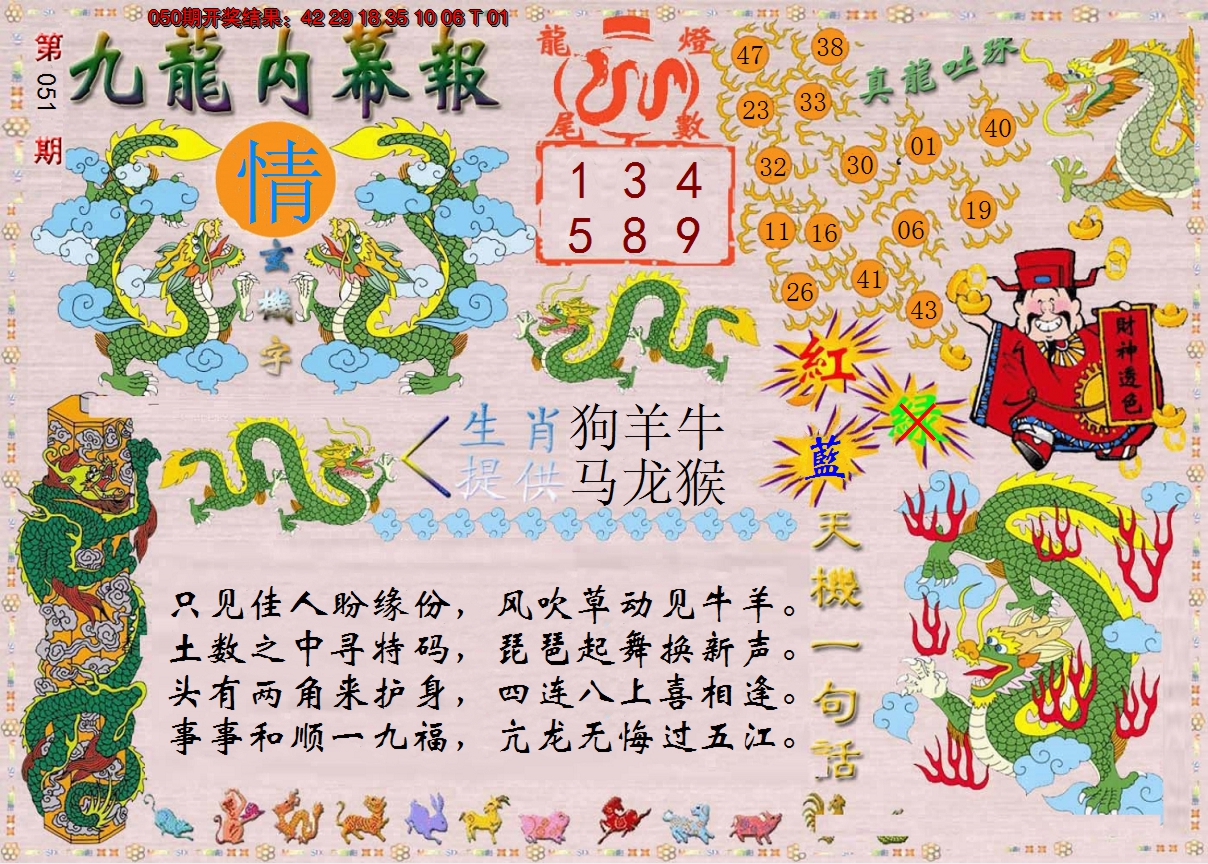 050期开奖结果：42 29 18 35 10 06 T 01
第051期
九龍内幕報
情
玄機字
龍燈尾數
1 3 4
5 8 9
真龍吐珠
47 38
23 33
32 30 01 40
11 16 06 19
26 41 43
紅
绿
藍
財神透色
生肖 狗羊牛
提供 马龙猴
天機一句話
只见佳人盼缘份，风吹草动见牛羊。
土数之中寻特码，琵琶起舞换新声。
头有两角来护身，四连八上喜相逢。
事事和顺一九福，亢龙无悔过五江。